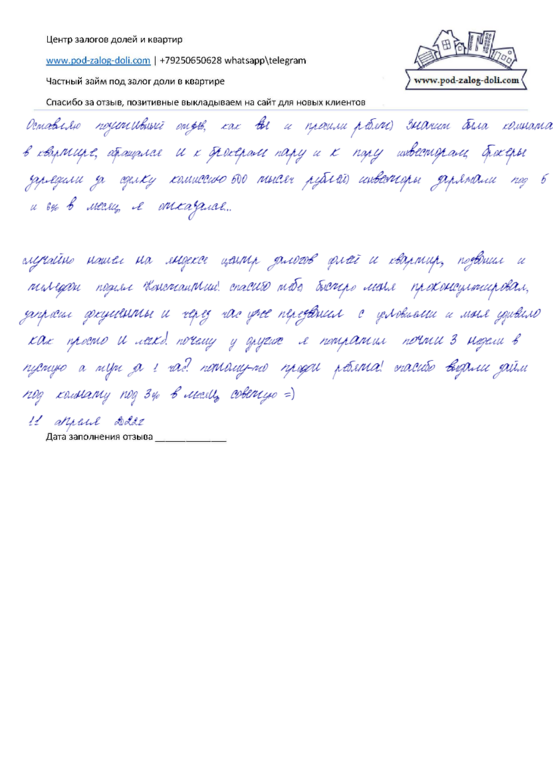 Центр залогов долей и квартир
www.pod-zalog-doli.com | +79250650628 whatsapp\telegram
www.pod-zalog-doli.com
Частный займ под залог доли в квартире
Спасибо за отзыв, позитивные выкладываем на сайт для новых клиентов
Оставляю позитивный отзыв, как вы и просили ребят) Значит была комната
в квартире, обращался и к брокерам пару и к пару инвесторам, брокеры
зарядили за сделку комиссию 600 тысяч рублей) инвесторы заряжали под 5
и 6% в месяц, я отказался...
случайно нашел на яндексе центр залогов долей и квартир, позвонил и
менеджер поднял Константин! спасибо тебе, быстро меня проконсультировал,
запросил документы и через час уже перезвонил с условиями и меня удивило
как просто и легко! почему у других я потратил почти 3 недели в
пустую а тут за 1 час? потому-то профи ребята! спасибо выдали займ
под комнату под 3% в месяц, советую =)
11 апреля 2022
Дата заполнения отзыва